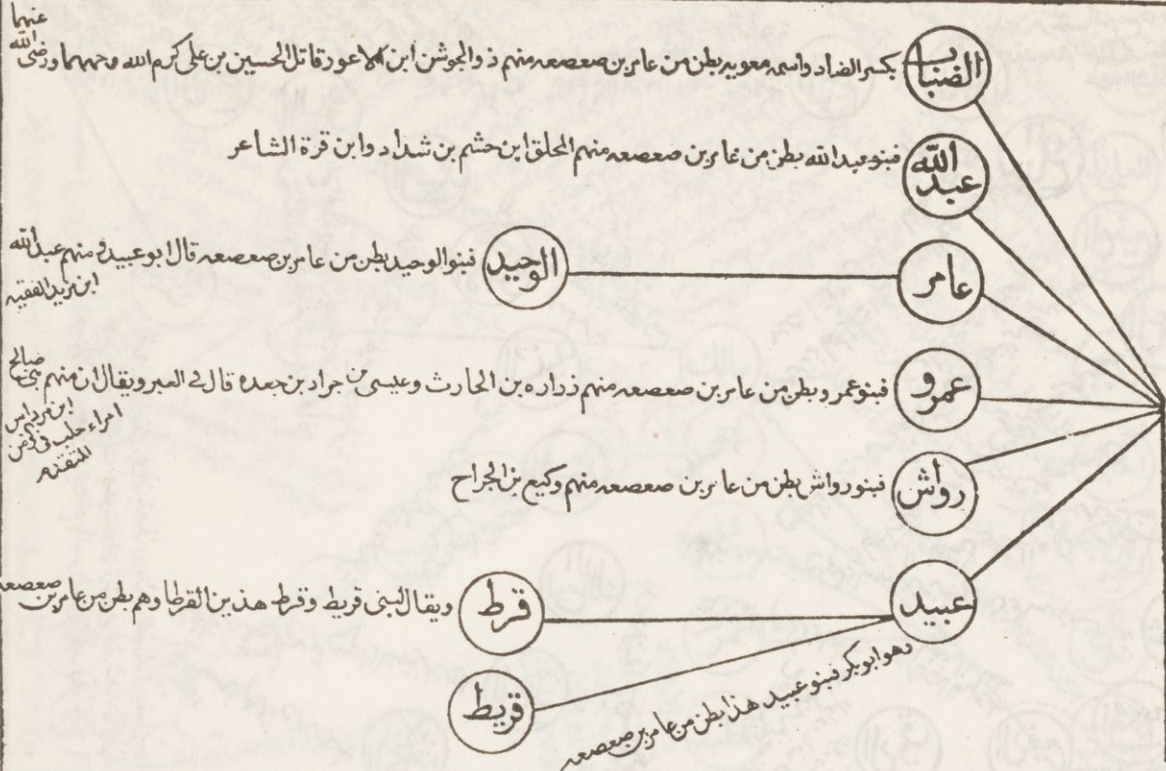 الضباب
بكسر الضاد واسمه معويه بطن من عامر بن صعصعه منهم ذو الجوشن ابن الاعور قاتل الحسين بن على كرم الله وجههما ورضى الله عنهما
عبد الله
فبنو عبد الله بطن من عامر بن صعصعه منهم المحلق ابن حشم بن شداد وابن قرة الشاعر
عامر
الوحيد
فبنو الوحيد بطن من عامر بن صعصعه قال ابو عبيد ومنهم عبد الله
ابن يزيد الفقيه
عمرو
فبنو عمرو بطن من عامر بن صعصعه منهم زراره بن الحارث وعيسى من جراد بن جعده قال فى العبر ويقال ان منهم بنى صالح
ابن مرداس
امراء حلب فى الزمن
المتقدم
رواش
فبنو رواش بطن من عامر بن صعصعه منهم وكيع بن الجراح
عبيد
وهو ابو بكر فبنو عبيد هذا بطن من عامر بن صعصعه
قرط
ويقال لبنى قريط وقرط هذين القرطا وهم بطن من عامر بن صعصعه
قريط